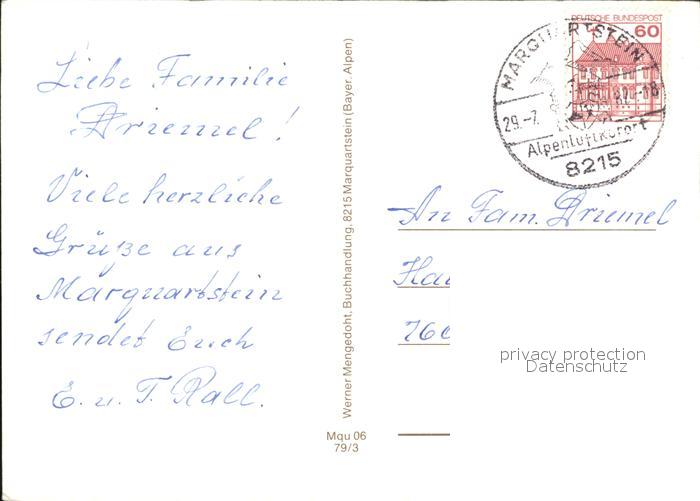 Liebe Familie
Driemel!
Viele herzliche
Grüße aus
Marquartstein
sendet Euch
E. u. T. Rall.
Werner Mengedoht, Buchhandlung, 8215 Marquartstein (Bayer. Alpen)
Mqu 06
79/3
DEUTSCHE BUNDESPOST
60
MARQUARTSTEIN
29.-7. 82.-18
Alpenluftkurort
8215
An Fam. Driemel
Hau
760
privacy protection
Datenschutz